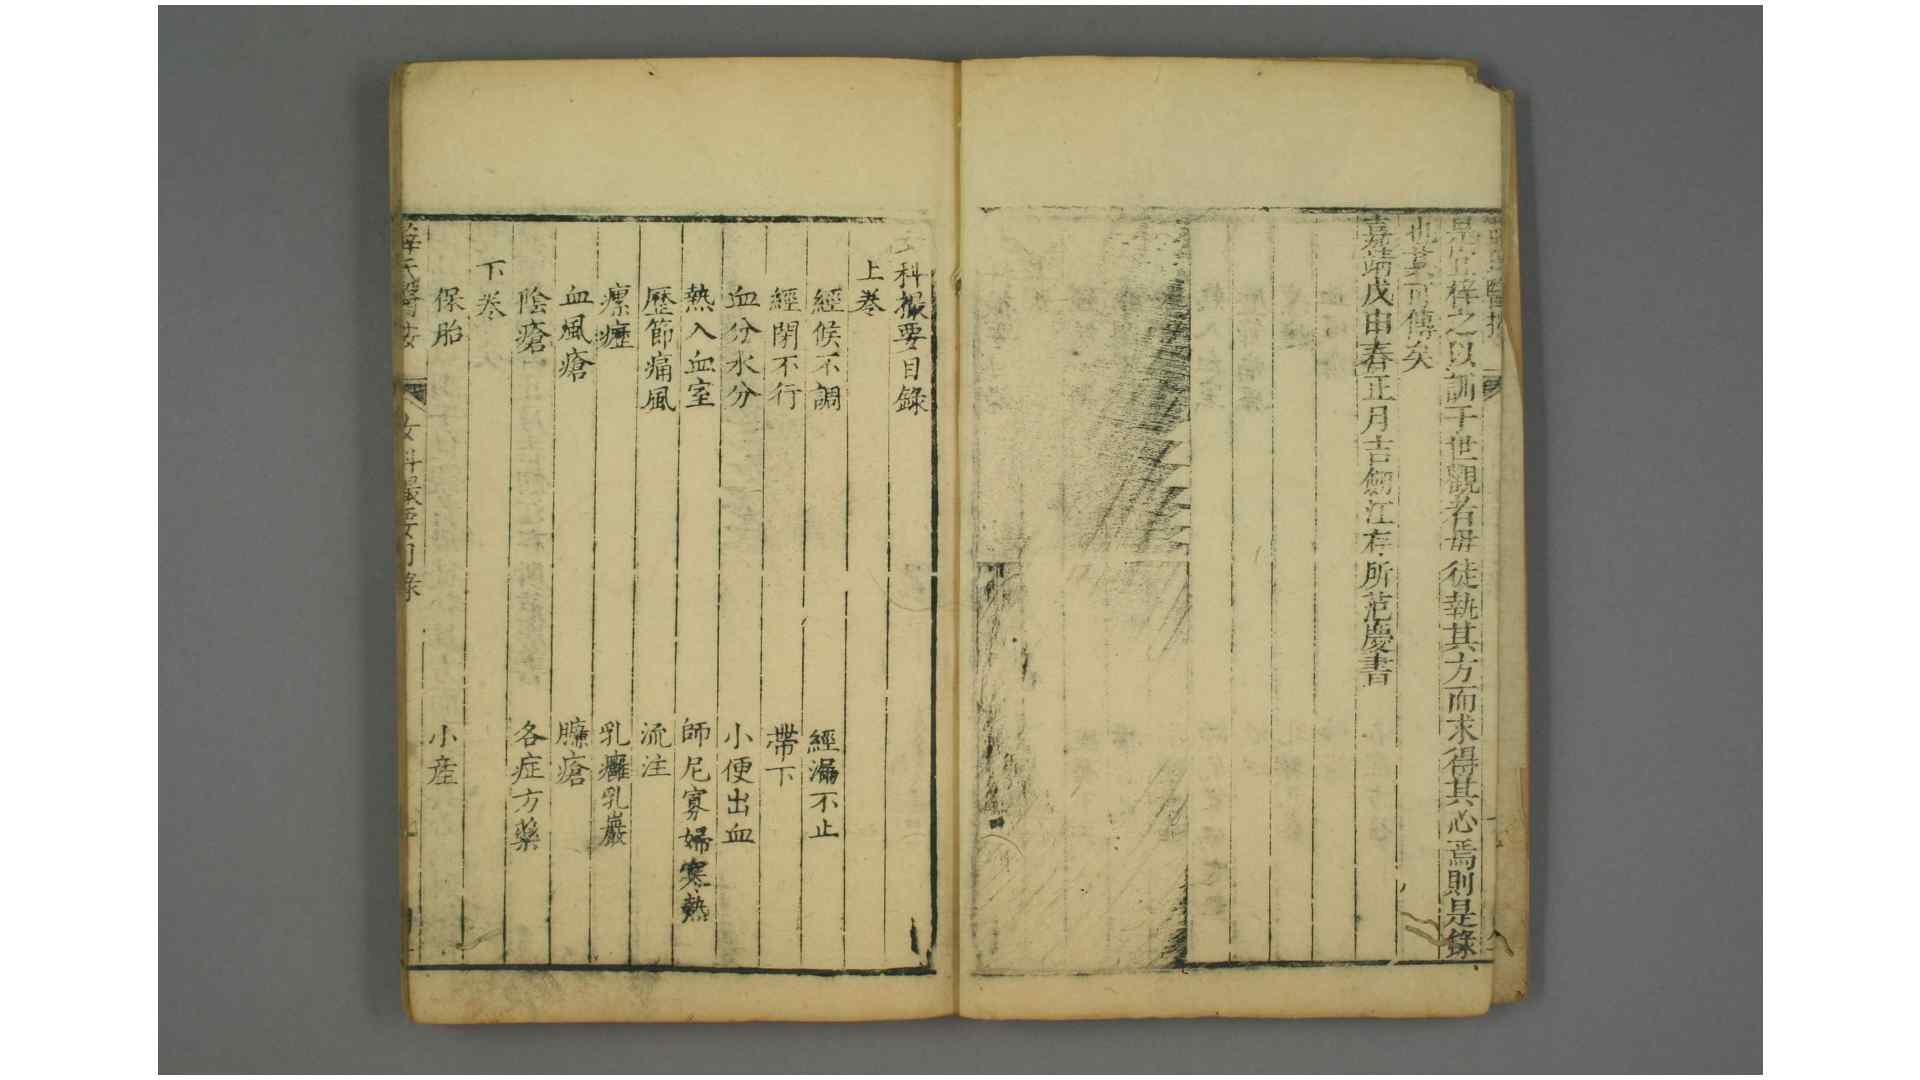 是宜梓之以訓于世觀者毋徒執其方而求得其心焉則是錄
也其可傳矣
嘉靖戊申春正月吉劒江存所范慶書
女科撮要目錄
上卷
經候不調 經漏不止
經閉不行 帶下
血分水分 小便出血
熱入血室 師尼寡婦寒熱
歷節痛風 流注
瘰癧 乳癰乳巖
血風瘡 臁瘡
陰瘡 各症方藥
下卷
保胎 小產
薛氏醫按 女科撮要目錄